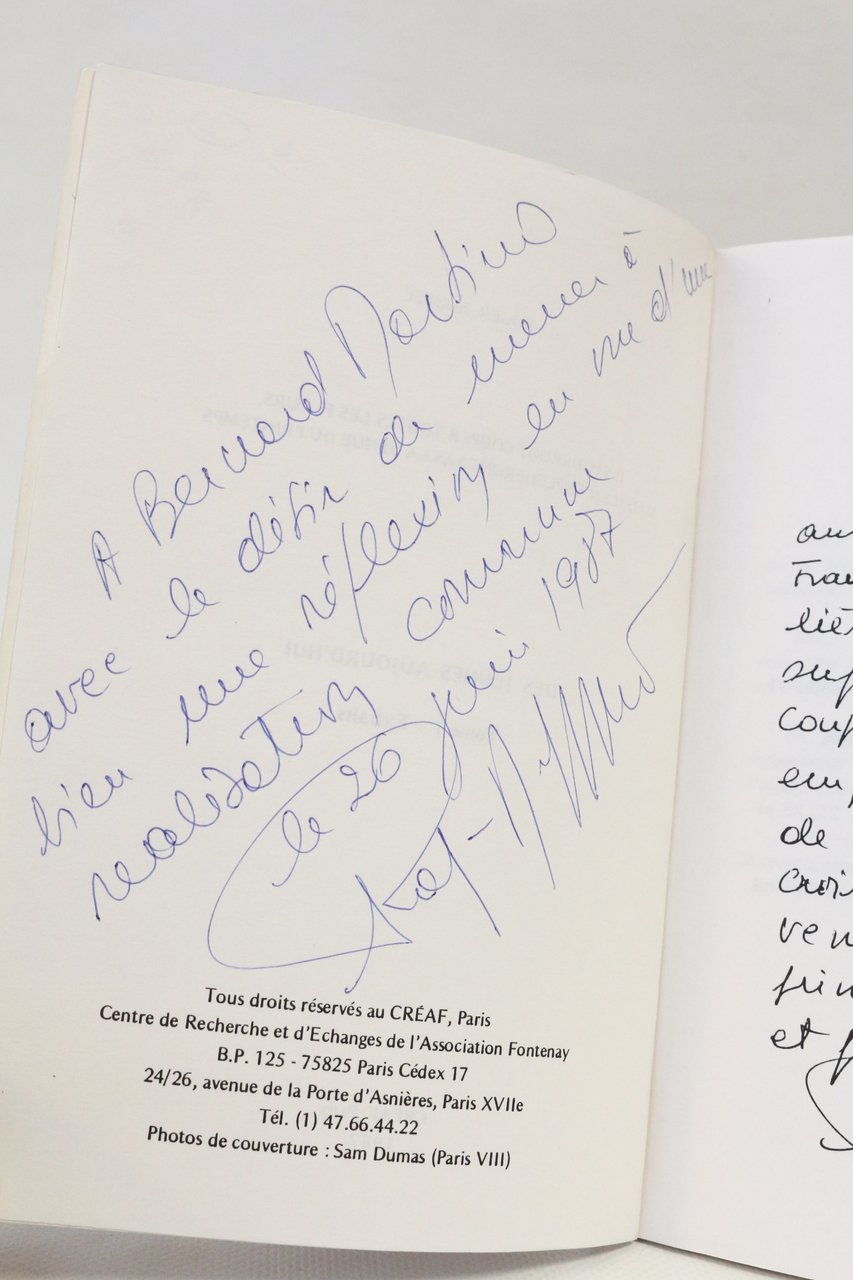 A Bernard Martino
avec le désir de mener à
bien une réflexion en vue d'une
realisation commune
le 26 juin 1987
Tous droits réservés au CRÉAF, Paris
Centre de Recherche et d'Echanges de l'Association Fontenay
B.P. 125 - 75825 Paris Cédex 17
24/26, avenue de la Porte d'Asnières, Paris XVIIe
Tél. (1) 47.66.44.22
Photos de couverture : Sam Dumas (Paris VIII)
de
et